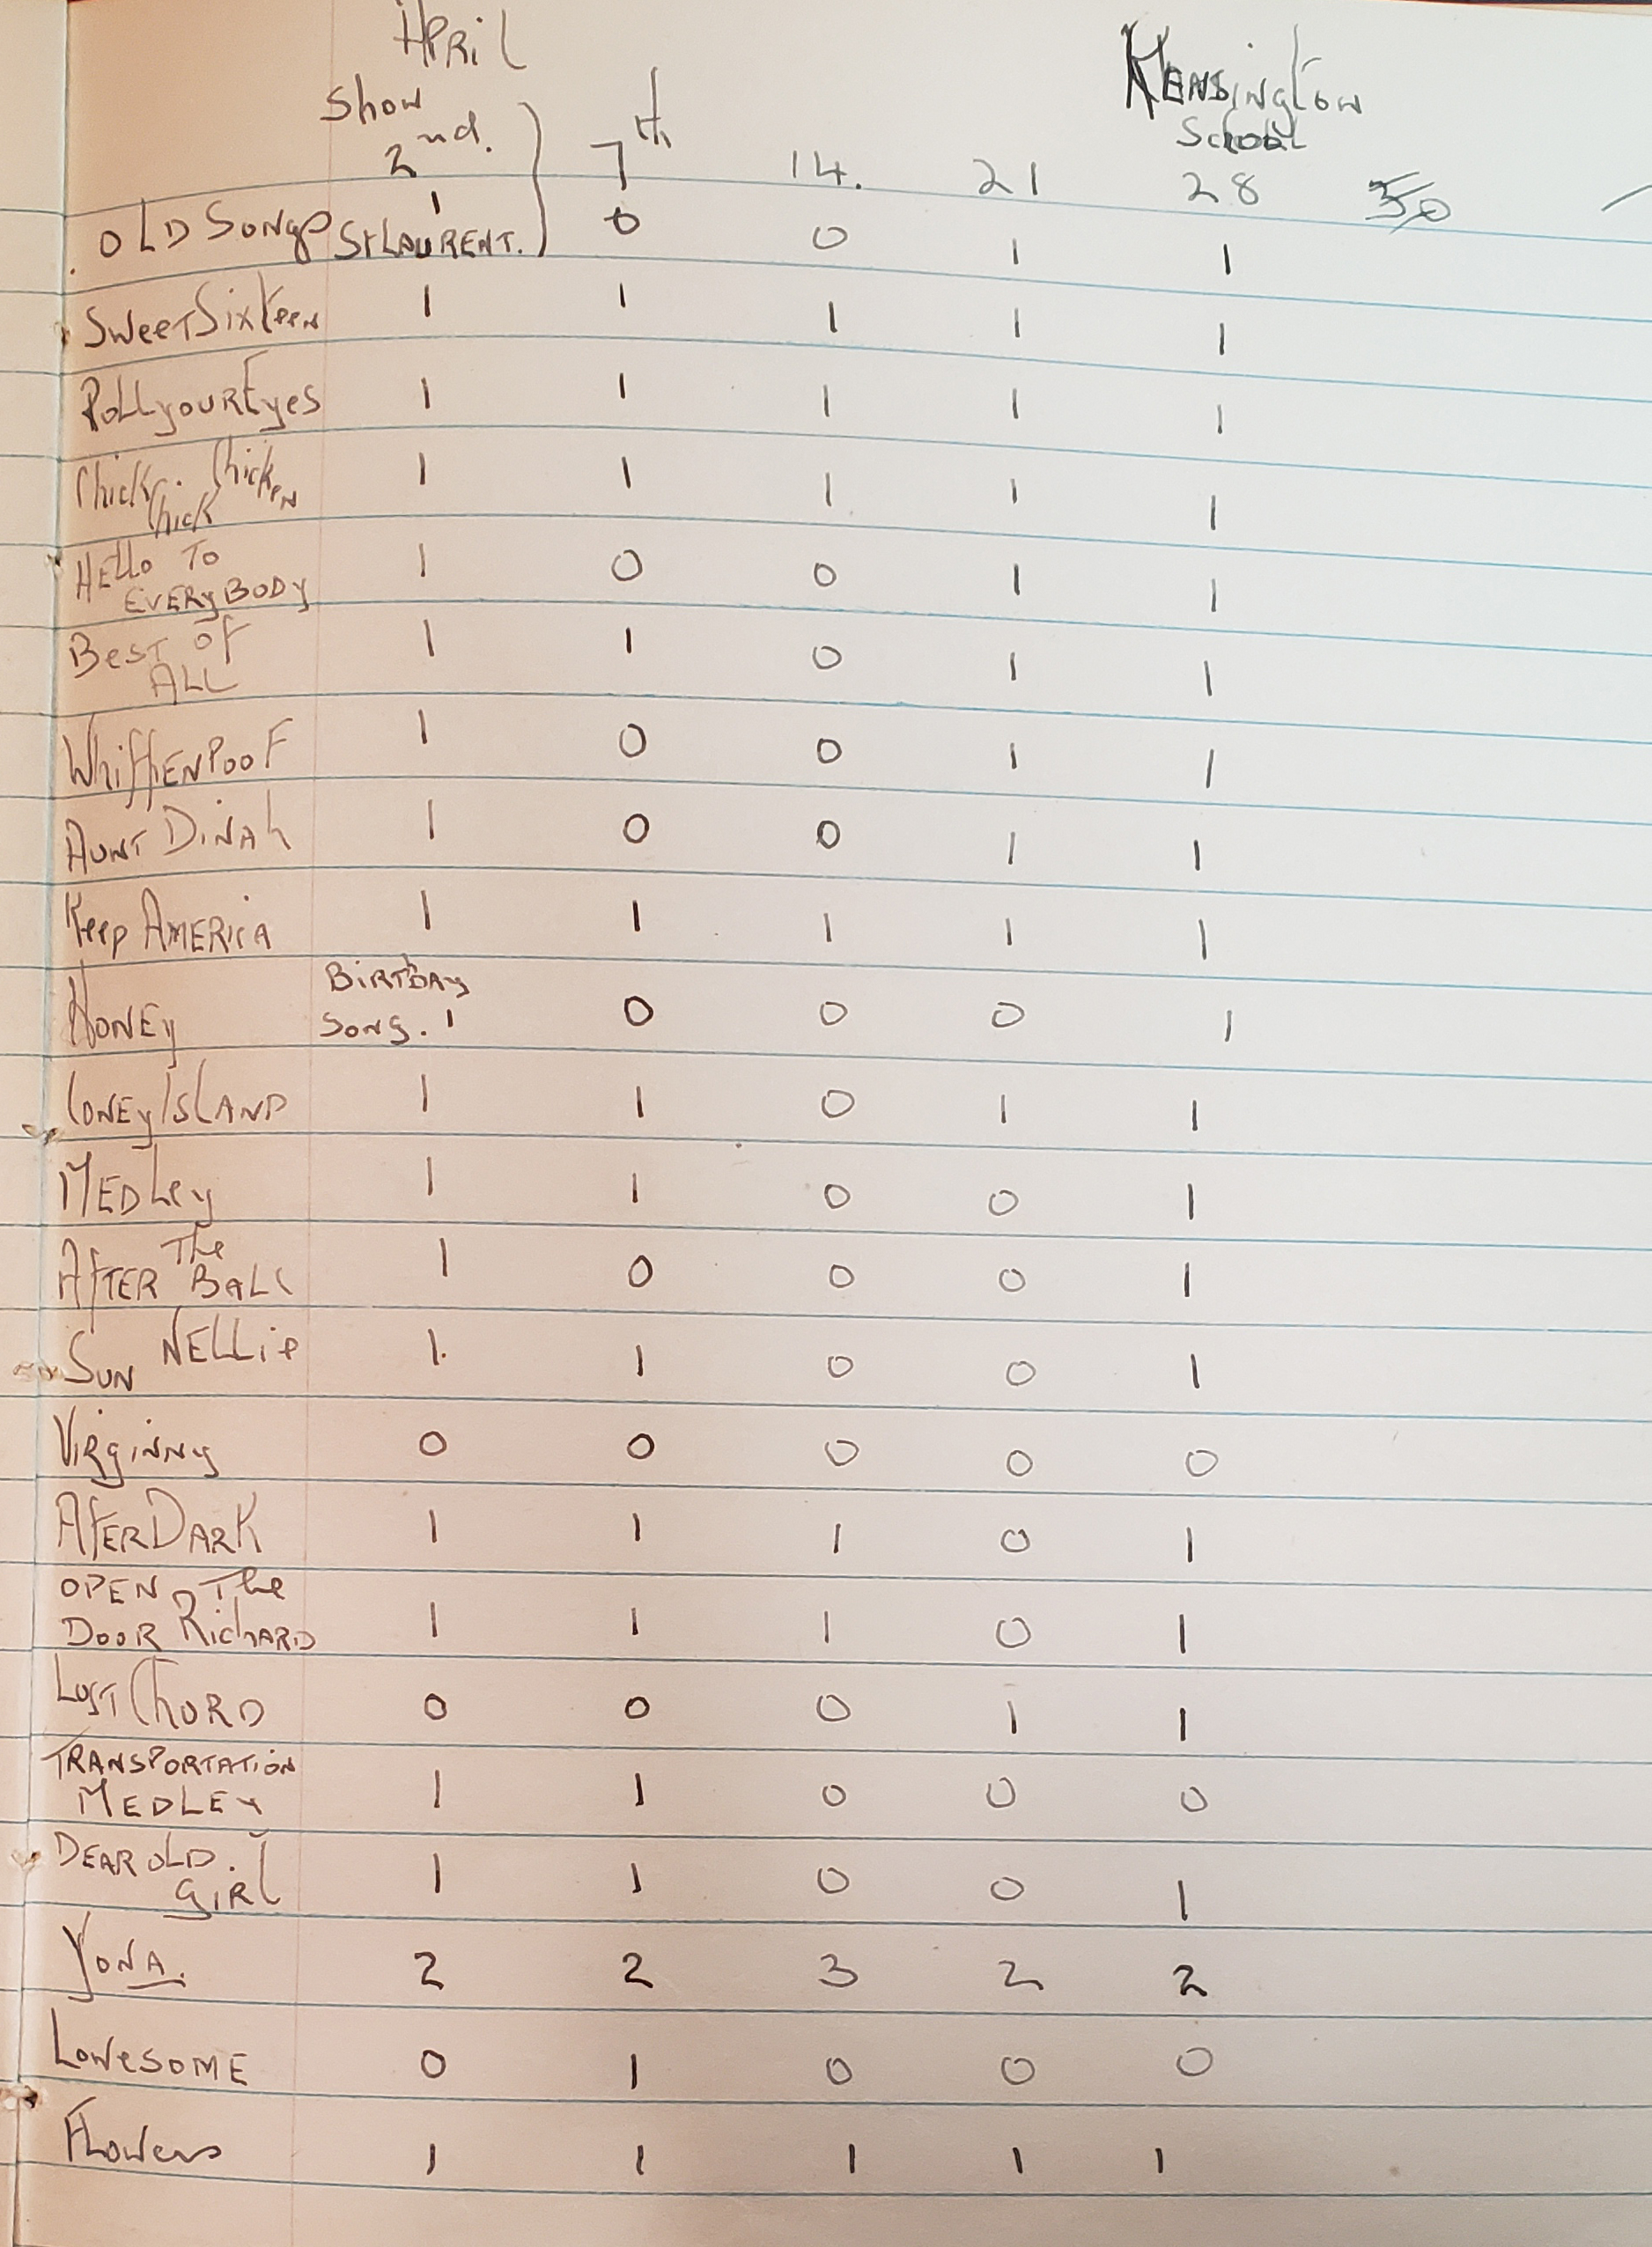 April
Show Kensington
2nd. 7th 14. 21 School 28
Old Songs 1 0 0 1 1
St Laurent.
Sweet Sixteen 1 1 1 1 1
Roll your Eyes 1 1 1 1 1
Chick. Chicken 1 1 1 1 1
Chick
Hello To 1 0 0 1 1
Everybody
Best of 1 1 0 1 1
All
Whiffenpoof 1 0 0 1 1
Aunt Dinah 1 0 0 1 1
Keep America 1 1 1 1 1
Birtday
Honey Song. 1 0 0 0 1
Coney Island 1 1 0 1 1
Medley 1 1 0 0 1
The
After Ball 1 0 0 0 1
Sun Nellie 1. 1 0 0 1
Virginny 0 0 0 0 0
After Dark 1 1 1 0 1
Open The
Door Richard 1 1 1 0 1
Lost Chord 0 0 0 1 1
Transportation
Medley 1 1 0 0 0
Dear old. 1 1 0 0 1
Girl
Yona. 2 2 3 2 2
Lonesome 0 1 0 0 0
Flowers 1 1 1 1 1